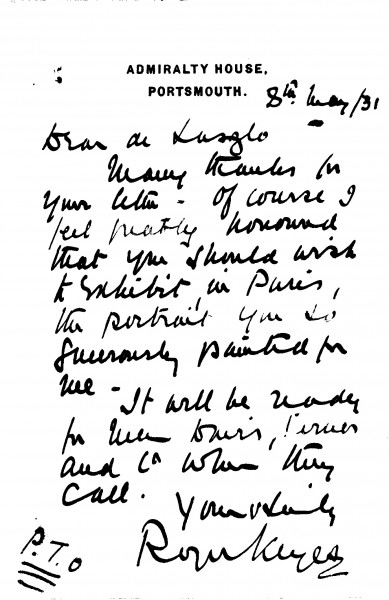 ADMIRALTY HOUSE,
PORTSMOUTH.
8th May/31
Dear de Laszlo
Many thanks for
your letter - Of course I
feel greatly honoured
that you should wish
to exhibit, in Paris,
the portrait you so
generously painted for
me -
It will be ready
for Messrs Davis, Turner
and Co when they
call.
Yours sincerely
Roger Keyes
P.T.O